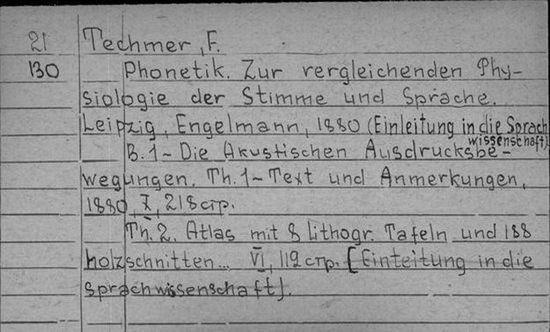 21 Techmer, F.
130 Phonetik. Zur vergleichenden Phy-
siologie der Stimme und Sprache.
Leipzig, Engelmann, 1880 (Einleitung in die Sprach
wissenschaft).
B.1 - Die Akustischen Ausdrucksbe-
wegungen. Th.1 - Text und Anmerkungen,
1880, X, 218 стр.
Th. 2. Atlas mit 8 lithogr. Tafeln und 188
holzschnitten... VI, 112 стр. [Einteitung in die
sprachwissenschaft].